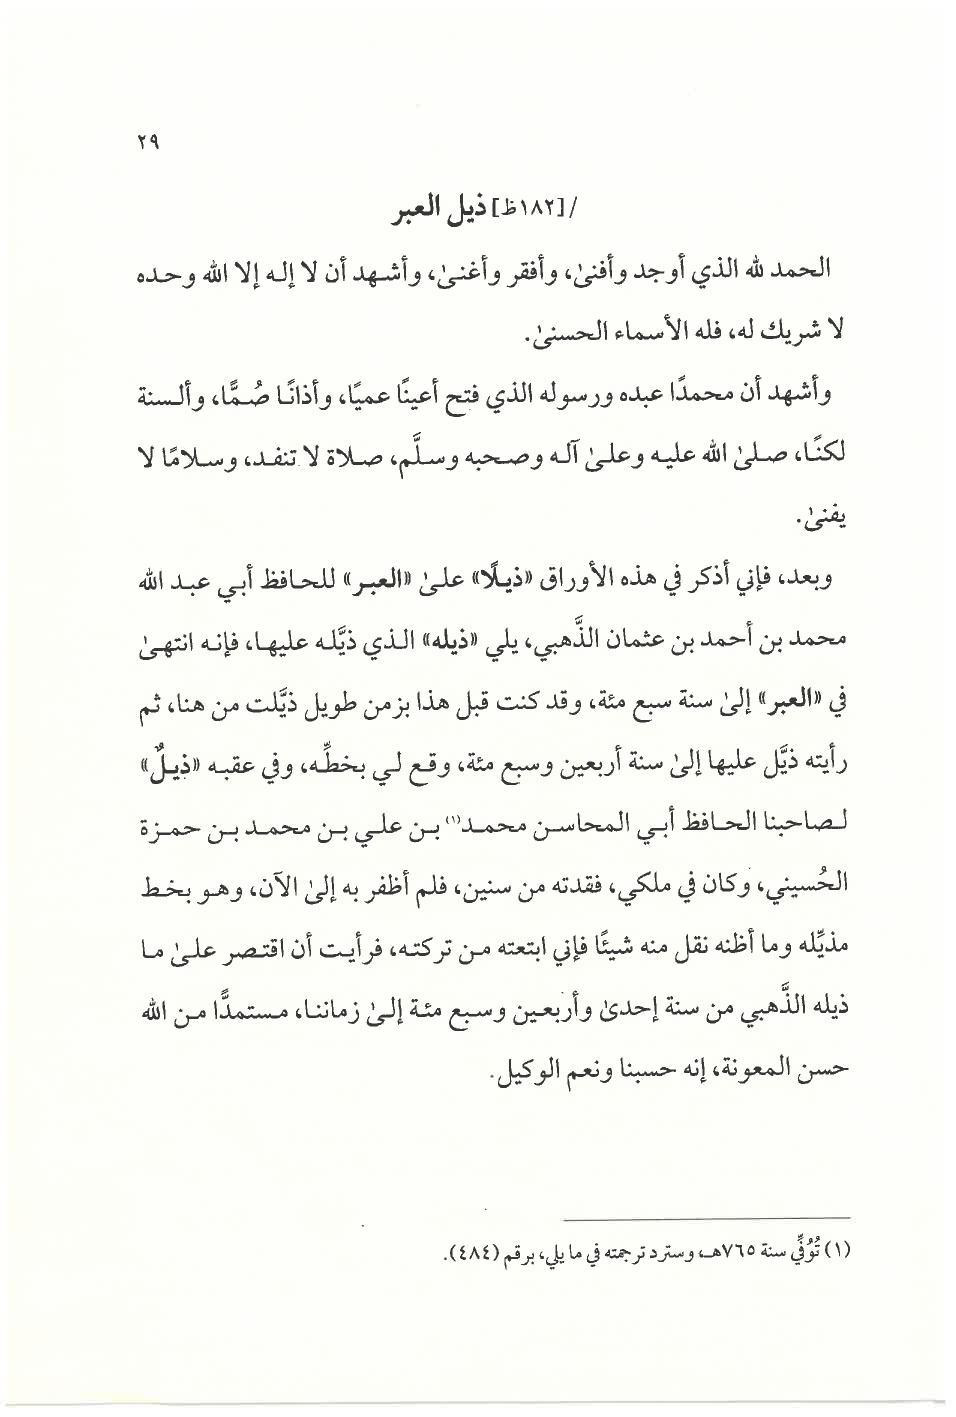 ٢٩
/[١٨٢ظ] ذيل العبر
الحمد لله الذي أوجد وأفنىٰ، وأفقر وأغنىٰ، وأشهد أن لا إله إلا الله وحده
لا شريك له، فله الأسماء الحسنىٰ.
وأشهد أن محمدًا عبده ورسوله الذي فتح أعينًا عميًا، وأذانًا صُمًّا، وألسنة
لكنًا، صلىٰ الله عليه وعلىٰ آله وصحبه وسلَّم، صلاة لا تنفد، وسلامًا لا
يفنىٰ.
وبعد، فإني أذكر في هذه الأوراق «ذيلًا» علىٰ «العبر» للحافظ أبي عبد الله
محمد بن أحمد بن عثمان الذَّهبي، يلي «ذيله» الذي ذيَّله عليها، فإنه انتهىٰ
في «العبر» إلىٰ سنة سبع مئة، وقد كنت قبل هذا بزمن طويل ذيَّلت من هنا، ثم
رأيته ذيَّل عليها إلىٰ سنة أربعين وسبع مئة، وقع لي بخطِّه، وفي عقبه «ذيلٌ»
لصاحبنا الحافظ أبي المحاسن محمد(١) بن علي بن محمد بن حمزة
الحُسيني، وكان في ملكي، فقدته من سنين، فلم أظفر به إلىٰ الآن، وهو بخط
مذيِّله وما أظنه نقل منه شيئًا فإني ابتعته من تركته، فرأيت أن اقتصر علىٰ ما
ذيله الذَّهبي من سنة إحدىٰ وأربعين وسبع مئة إلىٰ زماننا، مستمدًّا من الله
حسن المعونة، إنه حسبنا ونعم الوكيل.
(١) تُوُفِّي سنة ٧٦٥هـ، وسترد ترجمته في ما يلي، برقم (٤٨٤).